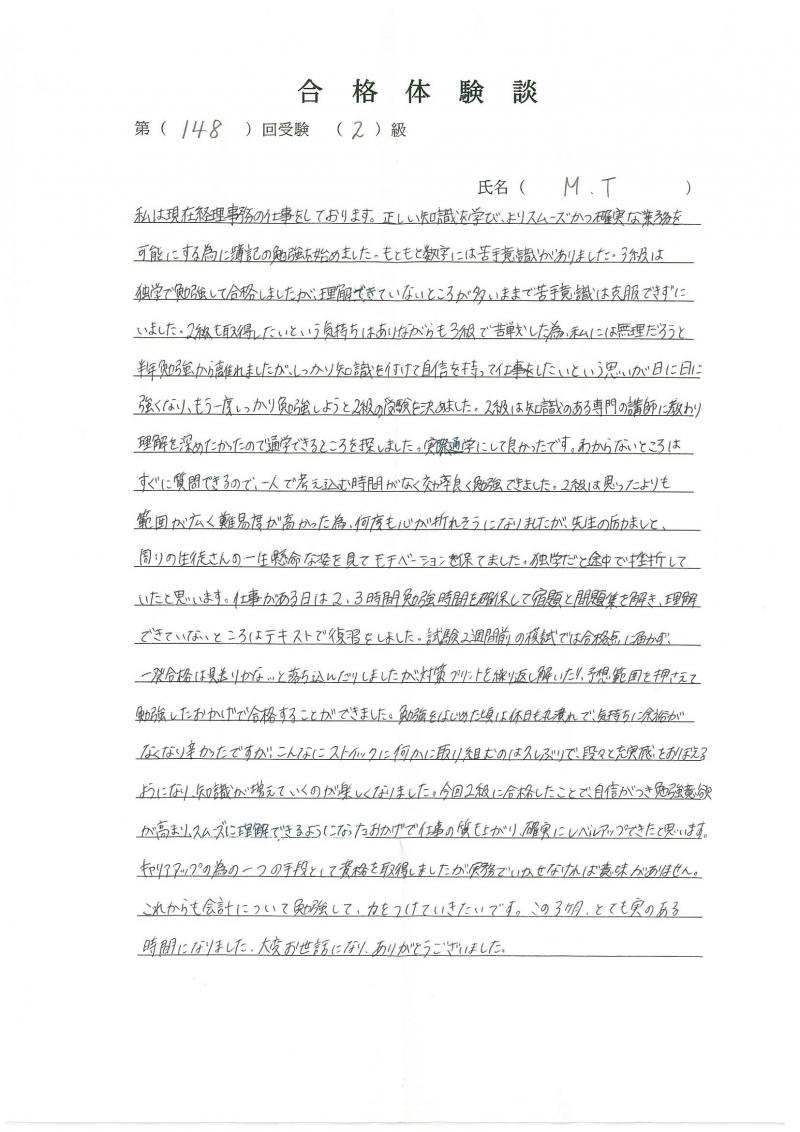 合格体験談
第（148）回受験 （2）級
氏名（ M.T ）
私は現在経理事務の仕事をしております。正しい知識を学び、よりスムーズかつ確実な業務を
可能にする為に簿記の勉強を始めました。もともと数字には苦手意識がありました。3級は
独学で勉強して合格しましたが、理解できていないところが多いままで苦手意識は克服できずに
いました。2級も取得したいという気持ちはありながらも3級で苦戦した為、私には無理だろうと
半年勉強から離れましたが、しっかり知識を付けて自信を持って仕事をしたいという思いが日に日に
強くなり、もう一度しっかり勉強しようと2級の受験を決めました。2級は知識のある専門の講師に教わり
理解を深めたかったので通学できるところを探しました。実際通学にして良かったです。わからないところは
すぐに質問できるので、一人で考え込む時間がなく効率良く勉強できました。2級は思ったよりも
範囲が広く難易度が高かった為、何度も心が折れそうになりましたが、先生の励ましと、
周りの生徒さんの一生懸命な姿を見てモチベーションを保てました。独学だと途中で挫折して
いたと思います。仕事がある日は2、3時間勉強時間を確保して宿題と問題集を解き、理解
できていないところはテキストで復習をしました。試験2週間前の模試では合格点に届かず、
一発合格は見送りかな…と落ち込んだりしましたが対策プリントを繰り返し解いたり、予想範囲を押さえて
勉強したおかげで合格することができました。勉強をはじめた頃は休日も丸潰れで、気持ちに余裕が
なくなり辛かったですが、こんなにストイックに何かに取り組むのは久しぶりで、段々と充実感をおぼえる
ようになり、知識が増えていくのが楽しくなりました。今回2級に合格したことで、自信がつき勉強意欲
が高まり、スムーズに理解できるようになったおかげで仕事の質も上がり、確実にレベルアップできたと思います。
キャリアアップの為の一つの手段として資格を取得しましたが実務でいかせなければ意味がありません。
これからも会計について勉強して、力をつけていきたいです。この3ヶ月、とても実のある
時間になりました、大変お世話になり、ありがとうございました。